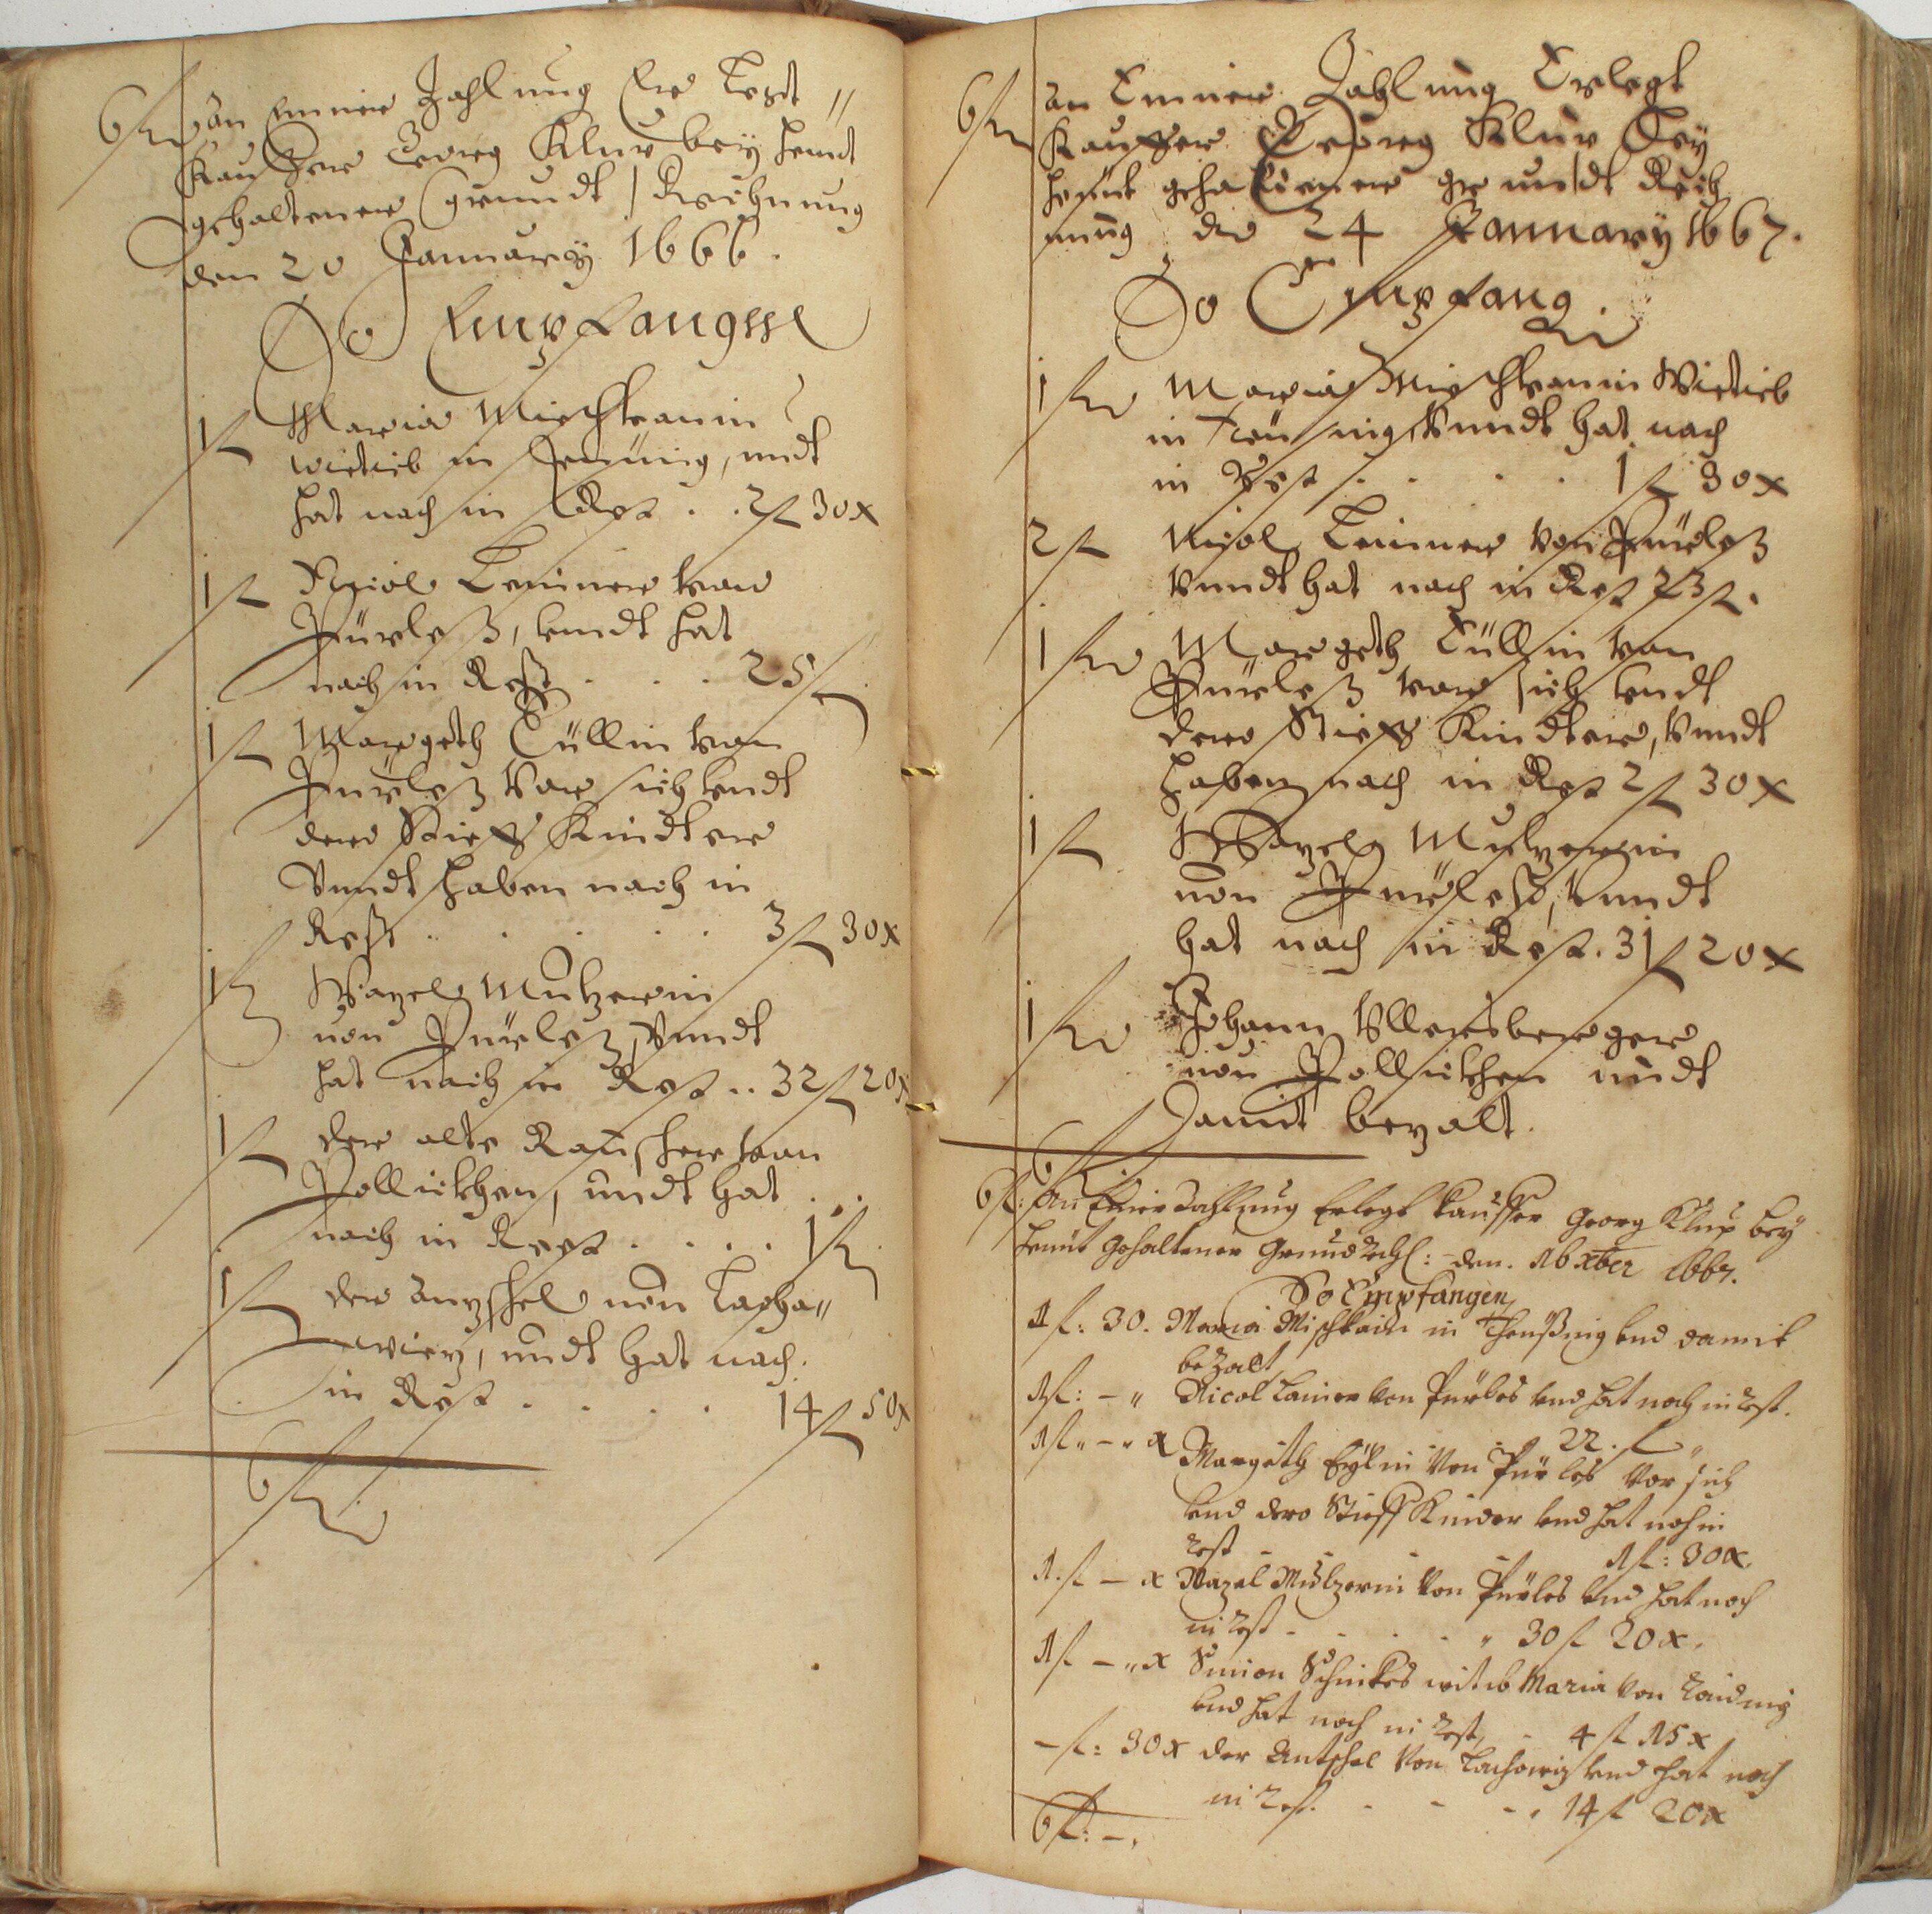 6 fl an Einer Zahlung Er Legt
Kauffer Georg Klux bey heudt
gehaltener Grundt Rechnung
den 20 January 1666.
So Empfangen
1 fl Maria Mischkanin
Wietieb in , undt
hat nach in Rest . . 2 fl 30 x
1 fl Nicol Leinner von
Pürleß, vndt hat
nach in Rest . . . 25 fl
1 fl Margeth Eüllin von
Pürleß Vor sich vndt
dero Stieff Kindter
Vnndt haben nach in
Rest . . . . . 3 fl 30 x
1 fl Wazel Mulzerin
von Pürleß, Vnndt
hat nach in Rest .. 32 fl 20 x
1 fl der alte Rauscher von
Pollickhen, undt hat
nach in Rest . . . . 1 fl
1 fl der Anzschel von Lacha„
wiez, undt hat nach
in Rest . . . . 14 fl 50 x
6 fl
6 fl an Einner Zahlung Erlegt
Kauffer Georg Klux Bey
heunt gehaltener grundt Rech
nung de 24 January 1667.
So Empfang.
1 fl Maria Mischkanin Wietieb
in , Vnndt hat nach
in Rest . . . . 1 fl 30 x
2 fl Nicol Leinner von Pürleß
Vnndt hat nach in Rest 23 fl.
1 fl Margeth Eüllin von
Pürleß vor sich vndt
dero Stieff Kindter, Vnndt
haben nach in Rest 2 fl 30 x
1 fl Wazel Mulzerin
von Pürleß, Vnndt
hat nach in Rest. 31 fl 20 x
1 fl Johann Ullersberger
von Pollickhen undt
Damit bezalt.
6 fl
6 fl: An Einer Zahlung Erlegt Kauffer Georg Klux bey
heunt gehaltener Grundrechl: den. 16 xber 1667.
So Empfangen
1 fl: 30. Maria Mischkain in Theußnig vnd damit
bezalt
1 fl: — „ Nicol Lainer von Pürles vnd hat noch in rest.
22. fl „
1 fl „ — „ x Margeth Eÿlin Von Pürles Vor sich
vnd dero Stieff Kinder vnd hat noh in
rest - - - 1 fl: 30 x.
1. fl — x Wazel Mulzerin von Pürles vnd hat noch
in rest - . . . „ 30 fl 20 x.
1 fl — „ x Simon Schickes witib Maria von
vnd hat noch in rest, - 4 fl 15 x
— fl: 30 x der Antschel Von Lachowiz vnd hat noch
in rest. - - - . 14 fl 20 x
6 fl: — .